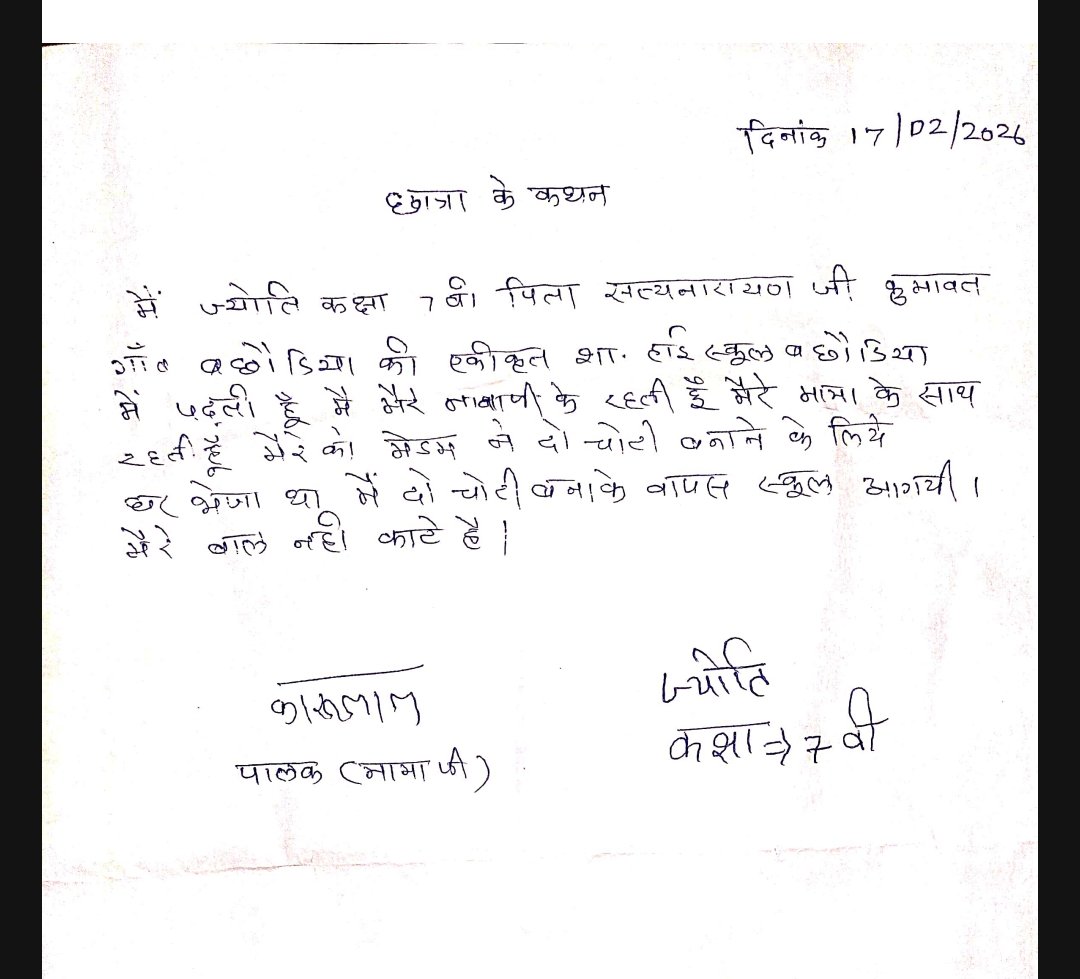 दिनांक 17/02/2026
छात्रा के कथन
में ज्योति कक्षा 7 वी पिता सत्यनारायण जी कुमावत
गाँव बछौडिया की एकीकृत शा. हाई स्कूल बछौडिया
में पढ़ती हूँ मै मैरे नानाजी के रहती हूँ मैरे मामा के साथ
रहती हूँ मैरे को मेडम ने दो चोटी बनाने के लिये
घर भेजा था मैं दो चोटी बनाके वापस स्कूल आगयी ।
मैरे बाल नही काटे है |
कारूलाल
ज्योति
पालक (मामा जी)
कक्षा => 7 वी